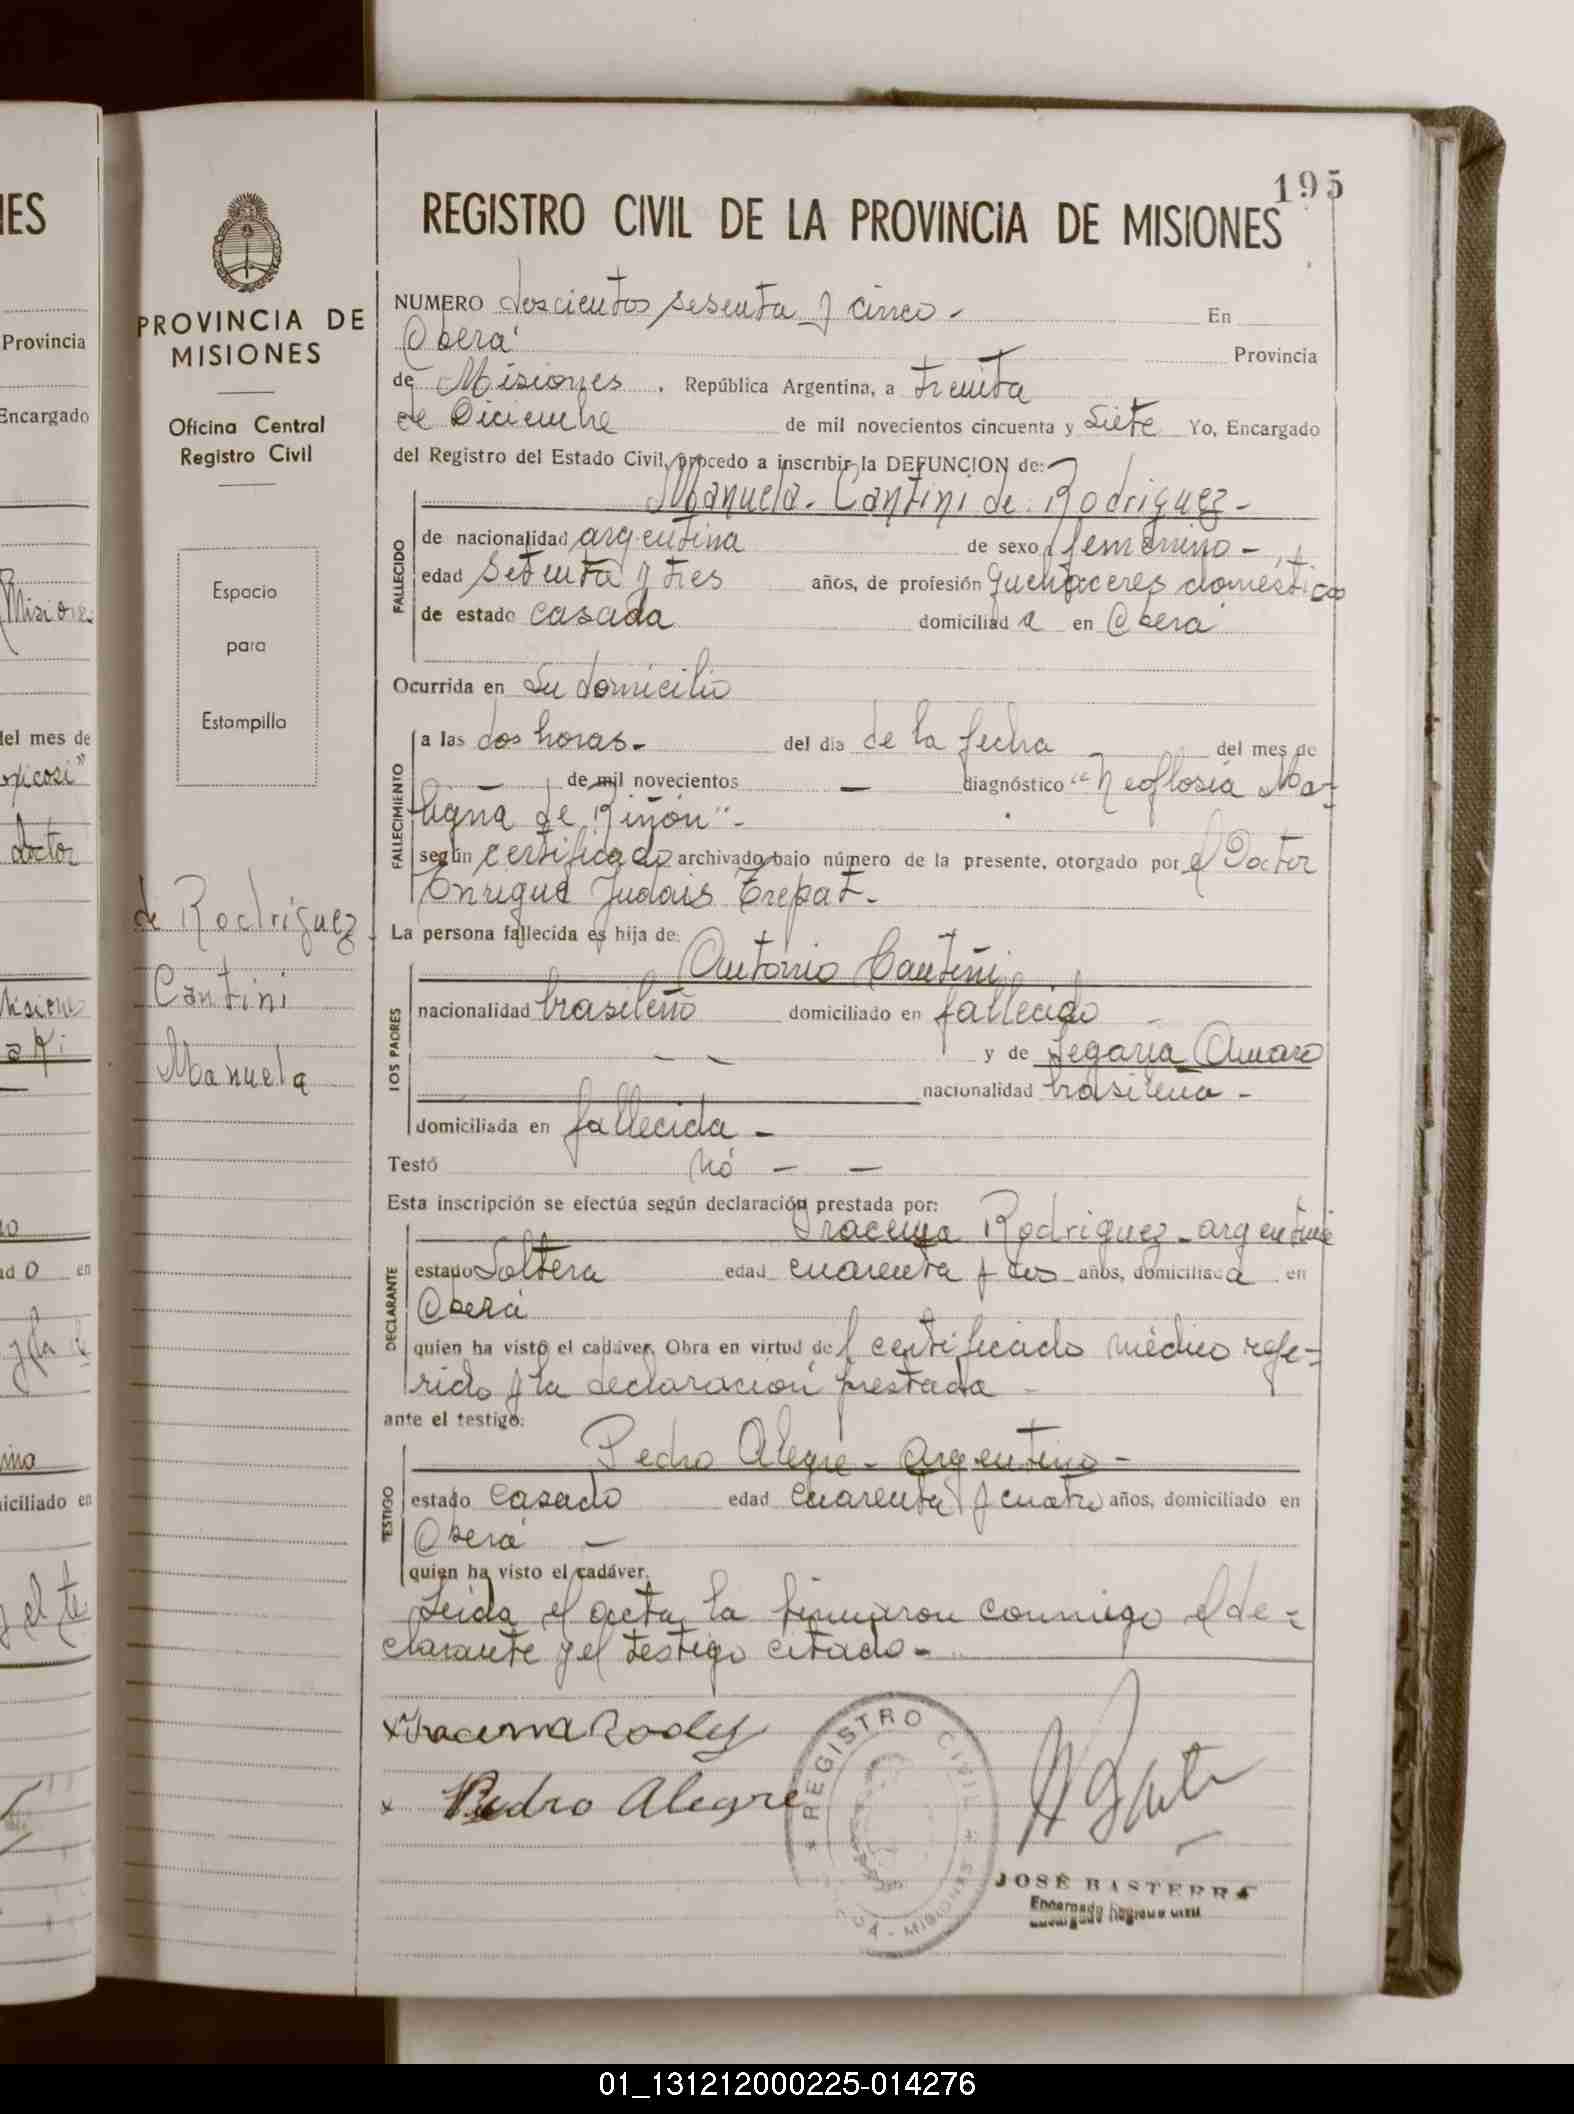 195
REGISTRO CIVIL DE LA PROVINCIA DE MISIONES
PROVINCIA DE
MISIONES
Oficina Central
Registro Civil
Espacio
para
Estampilla
de Rodriguez
Cantini
Manuela
NUMERO doscientos sesenta y cinco - En
Oberá Provincia
de Misiones, República Argentina, a treinta
de Diciembre de mil novecientos cincuenta y siete Yo, Encargado
del Registro del Estado Civil, procedo a inscribir la DEFUNCION de:
Manuela Cantini de Rodriguez -
FALLECIDO
de nacionalidad argentina de sexo femenino -
edad setenta y tres años, de profesión quehaceres domésticos
de estado casada domiciliad a en Oberá
Ocurrida en su domicilio
FALLECIMIENTO
a las dos horas - del día de la fecha del mes de
de mil novecientos — diagnóstico "Neoplasia Ma-
ligna de Riñón" -
según certificado archivado bajo número de la presente, otorgado por el Doctor
Enrique Judais Trepat -
La persona fallecida es hija de:
Antonio Cantini
LOS PADRES
nacionalidad brasileño domiciliado en fallecido -
- - y de Segaria Amaro
nacionalidad brasileña -
domiciliada en fallecida -
Testó nó - —
Esta inscripción se efectúa según declaración prestada por:
Iracema Rodriguez - argentina
DECLARANTE
estado Soltera edad cuarenta y dos años, domiciliada en
Oberá
quien ha visto el cadáver. Obra en virtud del certificado médico refe-
rido y la declaración prestada -
ante el testigo:
Pedro Alegre - argentino -
TESTIGO
estado casado edad cuarenta y cuatro años, domiciliado en
Oberá —
quien ha visto el cadáver.
Leida el acta, la firmaron conmigo el de-
clarante y el testigo citado -
x Iracema Rodz
x Pedro Alegre
REGISTRO CIVIL
MISIONES
JOSÉ BASTERRA
Encargado Registro Civil
IES
Provincia
Encargado
Misiones
del mes de
doctor
ad o en
y la
miciliado en
y el te
01_131212000225-014276